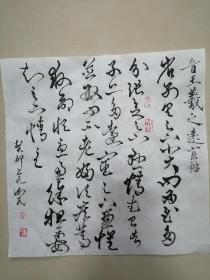 晋王羲之远宦帖
省别具足下小大问为慰多
分张念足下悬情武昌诸
子亦多远宦足下兼怀
并数问不老妇顷疾笃
救命恒忧虑余粗平安
知足下情至
癸卯